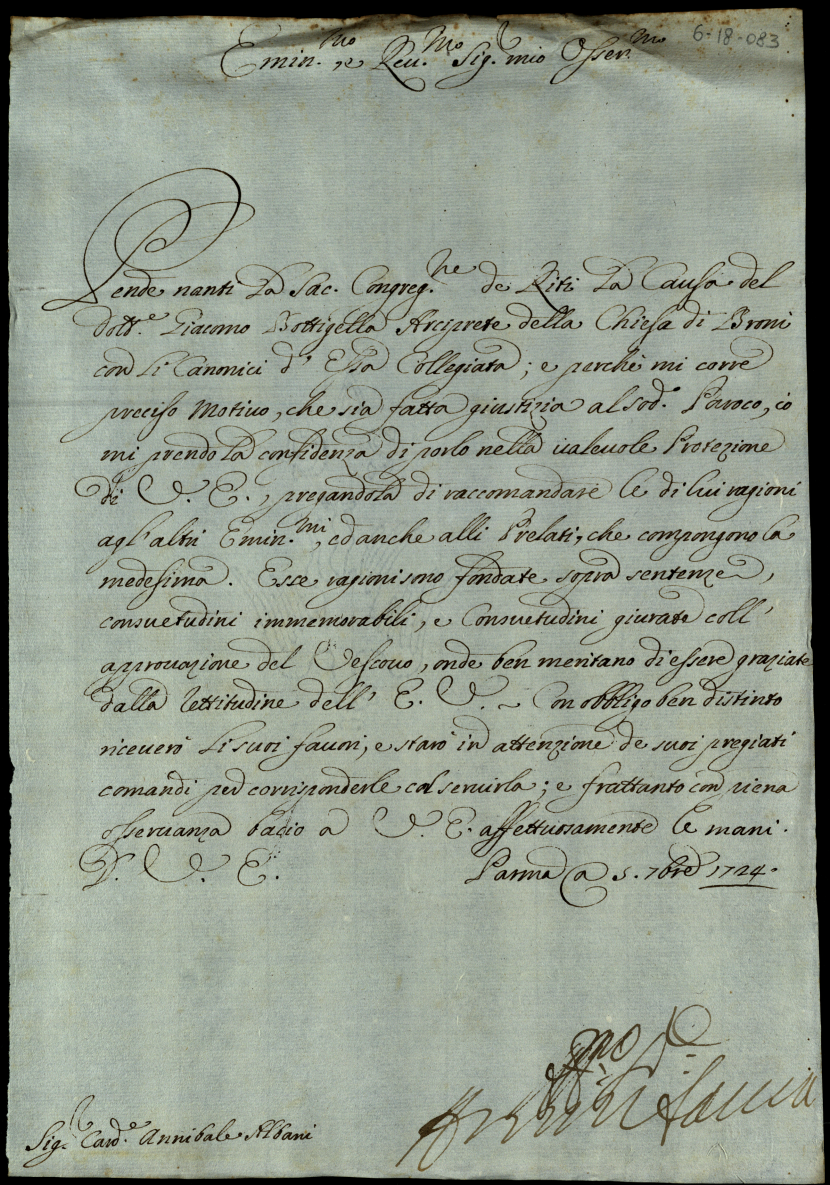 6-18-083
Emin.mo e Rev.mo Sig.r mio Osser.mo
Pende nanti la Sac. Congreg.ne de Riti la Causa del
Dott.e Giacomo Bottigella Arciprete della Chiesa di Broni
con li Canonici d' Essa Collegiata; e perchè mi corre
preciso Motivo, che sia fatta giustizia al sod.o Paroco, io
mi prendo la confidenza di porlo nella valevole Protezione
di V. E., pregandola di raccomandare le di lui ragioni
agl' altri Emin.mi, ed anche alli Prelati, che compongono la
medesima. Esse ragioni sono fondate sopra sentenze,
consuetudini immemorabili, e Consuetudini giurate coll'
approvazione del Vescovo, onde ben meritano di essere graziate
dalla rettitudine dell' E. V. Con obbligo ben distinto
riceverò li suoi favori, e starò in attenzione de suoi pregiati
comandi per corrisponderle col servirla; e frattanto con piena
osservanza bacio a V. E. affettuosamente le mani.
D. V. E. Parma a 5. 7bre 1724.
Sig.r Card.e Annibale Albani